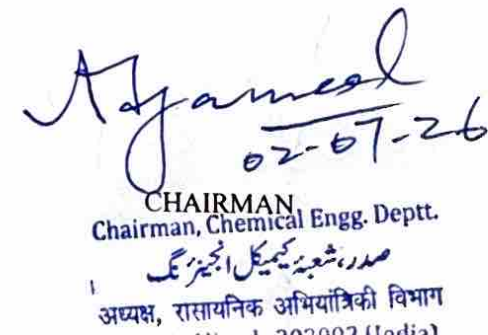 02-07-26
CHAIRMAN
Chairman, Chemical Engg. Deptt.
صدر، شعبۂ کیمیکل انجینئرنگ
अध्यक्ष, रासायनिक अभियांत्रिकी विभाग
202002 (India)